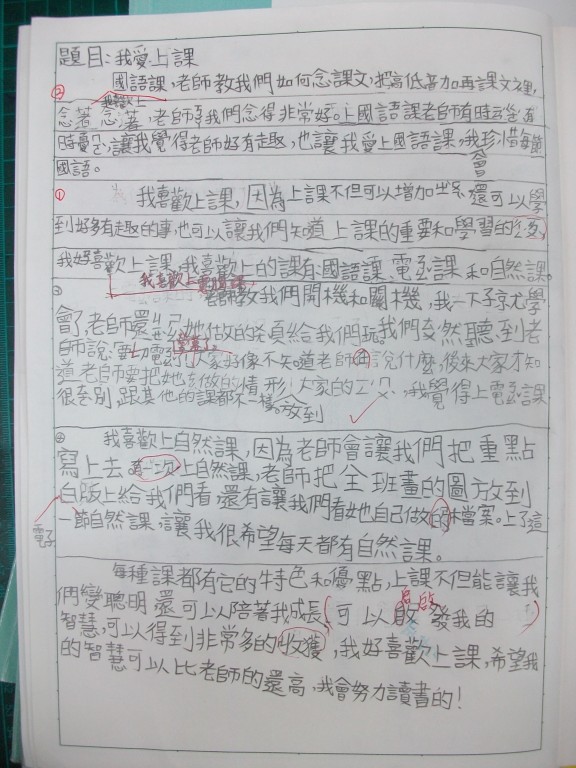 題目:我愛上課
國語課,老師教我們如何念課文,把高低音加再課文裡,
我喜歡上
念著念著,老師 我們念得非常好。上國語課老師有時
時 ,讓我覺得老師好有趣,也讓我愛上國語課,我珍惜每節
國語。
會
① 我喜歡上課,因為上課不但可以增加 還可以學
到好多有趣的事,也可以讓我們知道上課的重要和學習的
我好喜歡上課,我喜歡上的課有:國語課、電 課和自然課。
我喜歡上電腦課
③ 老師教我們開機和關機,我一下子就學
會了,老師還 她做好的 給我們玩,我們突然聽到老
師說:要 電 大家好像不知道老師再說什麼,後來大家才知
道老師要把她 做的情形 大家的 ,我覺得上電 課
很特別 跟其他的課都不一樣。放到
④ 我喜歡上自然課,因為老師會讓我們把重點
寫上去 有一次 上自然課,老師把全班畫的圖放到
白版上給我們看還有讓我們看她自己做的 檔案。上了這
電子
一節自然課,讓我很希望每天都有自然課。
每種課都有它的特色和優點,上課不但能讓我
們變聰明還可以陪著我成長,可以啟發我的
啟
智慧,可以得到非常多的收獲,我好喜歡上課,希望我
的智慧可以比老師的還高,我會努力讀書的!